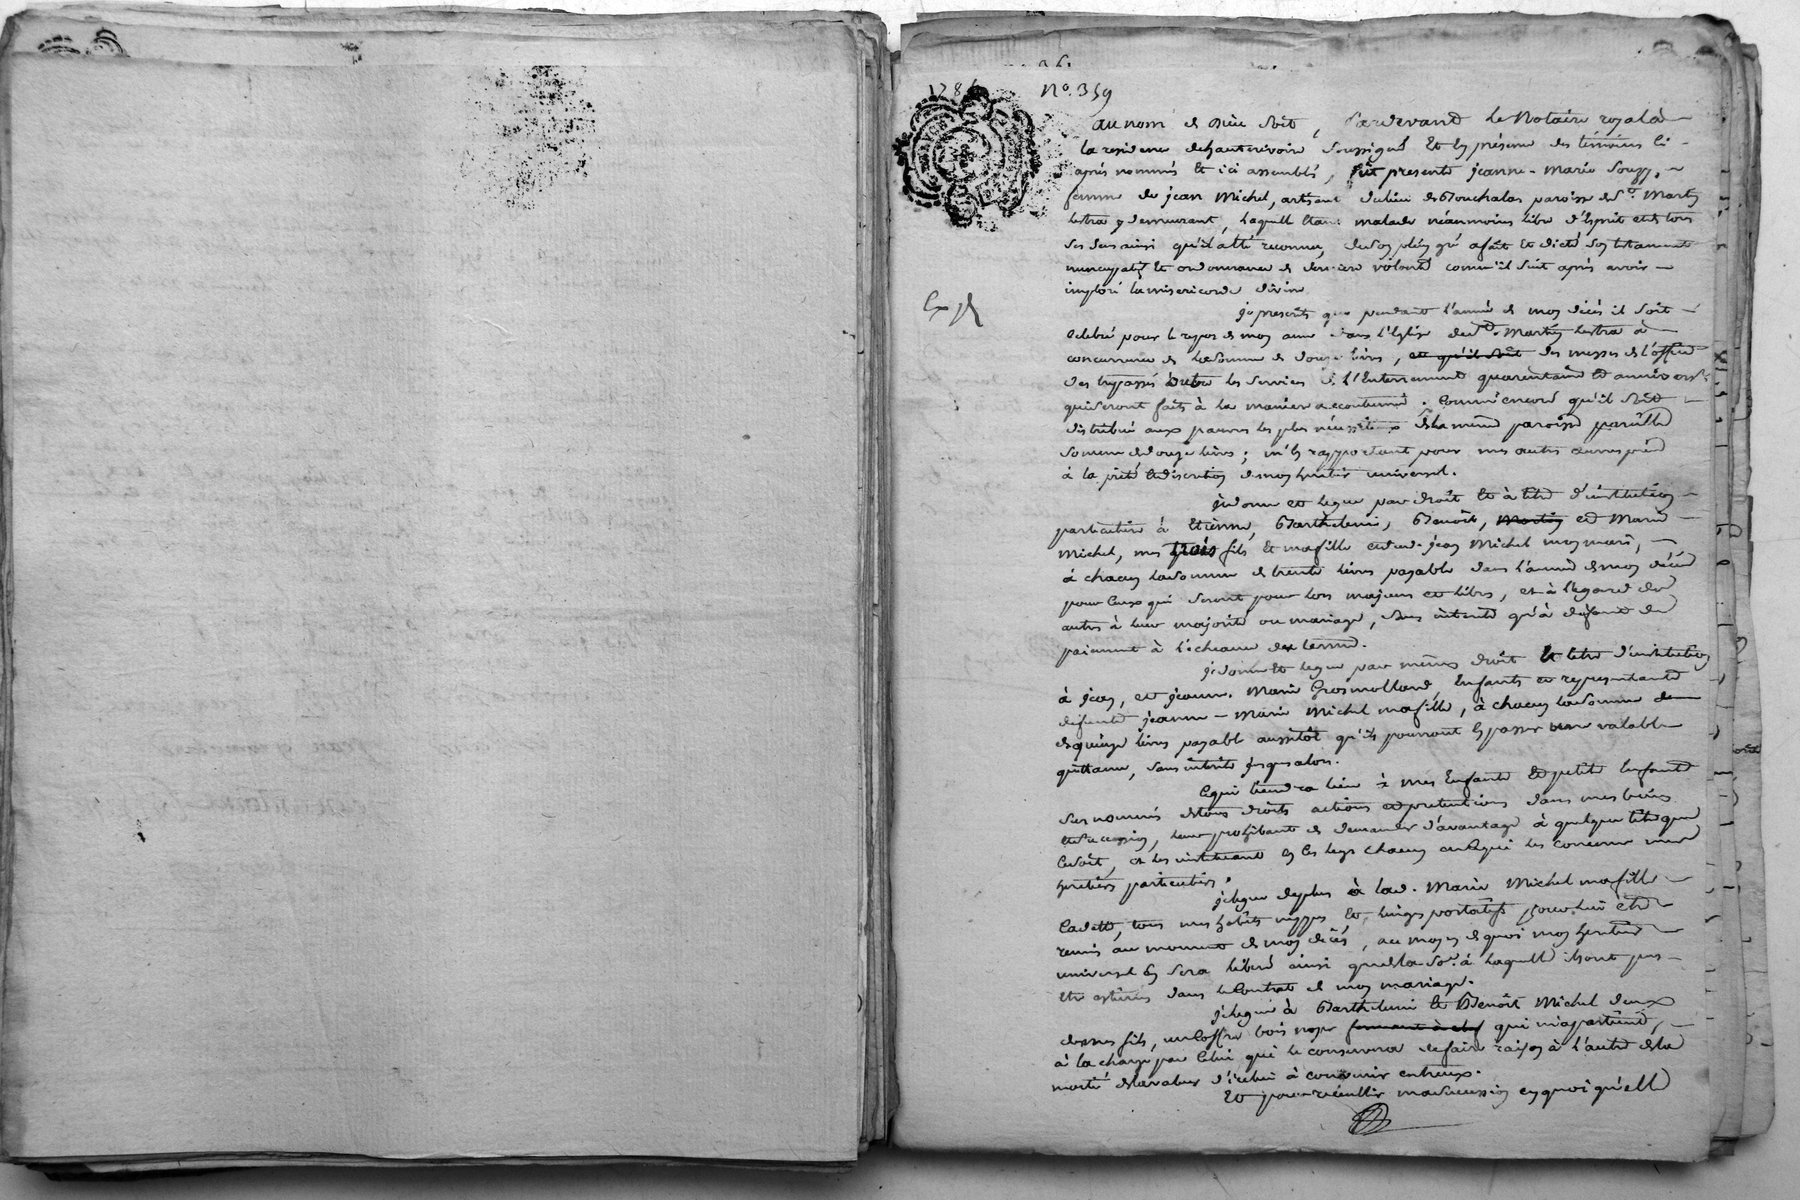 1786
N.° 359
au nom de Dieu soit, Pardevant le Notaire royal à
la residence de hauterivoire soussigné Et En présence des temoins ci-
après nommés Et ici assemblés, fût presente jeanne-Marie
femme de jean Michel, artisant du lieu de paroisse de St. Martin
lestra y demeurant, laquelle Etant malade néanmoins libre d'Esprit et de tous
ses sens ainsi qu'il a été reconnu, de son plein gré a fait Et dicté son testament
nuncupatif Et ordonnance de derniere volonté comm'il suit après avoir
imploré la misericorde divine
Exp
je prescrits que pendant l'année de mon décès il soit
célébré pour le repos de mon ame dans l'Eglise de St. Martin lestra à
concurrence de la somme de douze livres, et qu'il soit des messes de l'office
des trépassés outre les services de l'Enterrement quarantaine Et anniversre.
qui seront faits à la maniere accoutumée. Comm'encore qu'il soit
distribué aux pauvres les plus nécessiteux de la même paroisse pareille
somme de douze livres; m'En rapportant pour mes autres œuvres pies
à la piété Et discrétion de mon heritier universel.
je donne et legue par droit Et à titre d'institution
particulière à Etienne, Barthelemi, Benoît, Martin et Marie
Michel, mes trois fils Et ma fille et dud. jean Michel mon mari,
à chacun la somme de trente livres payable dans l'année de mon décès
pour Ceux qui seront pour lors majeurs et libres, et à l'égard des
autres à leur majorité ou mariage, sans intérêts qu'à défaut de
paiement à l'échéance du terme.
je donne Et legue par mêmes droit Et titre d'institution
à jean, et jeanne-Marie Grosmolland, Enfants et représentants
defunte jeanne-Marie Michel ma fille, à chacun la somme de
de quinze livres payable aussitôt qu'ils pourront En passer une valable
quittance, sans intérêts jusqu'alors.
Ce qui tiendra lieu à mes Enfants Et petits Enfants
sus nommés de tous droits actions et prétentions dans mes biens
et succession, leur prohibant de demander d'avantage à quelque titre que
Ce soit, et les instituant En Ces legs chacun en Ce qui les concerne mes
heritiers particuliers.
je legue de plus à lad. Marie Michel ma fille
Cadette, tous mes habits nippes Et linges portatifs pour lui être
remis au moment de mon décès, au moyen de quoi mon heritier
universel En sera libéré ainsi que de la somme à laquelle ils ont pus
etre estimés dans le Contrat de mon mariage.
je legue à Barthelemi Et Benoît Michel deux
de mes fils, un Coffre bois noyer fermant à clef qui m'appartient,
à la charge par Celui qui le conservera de faire raison à l'autre de la
moitié de la valeur d'icelui à convenir entreux.
Et pour recueillir ma succession en quoi qu'elle